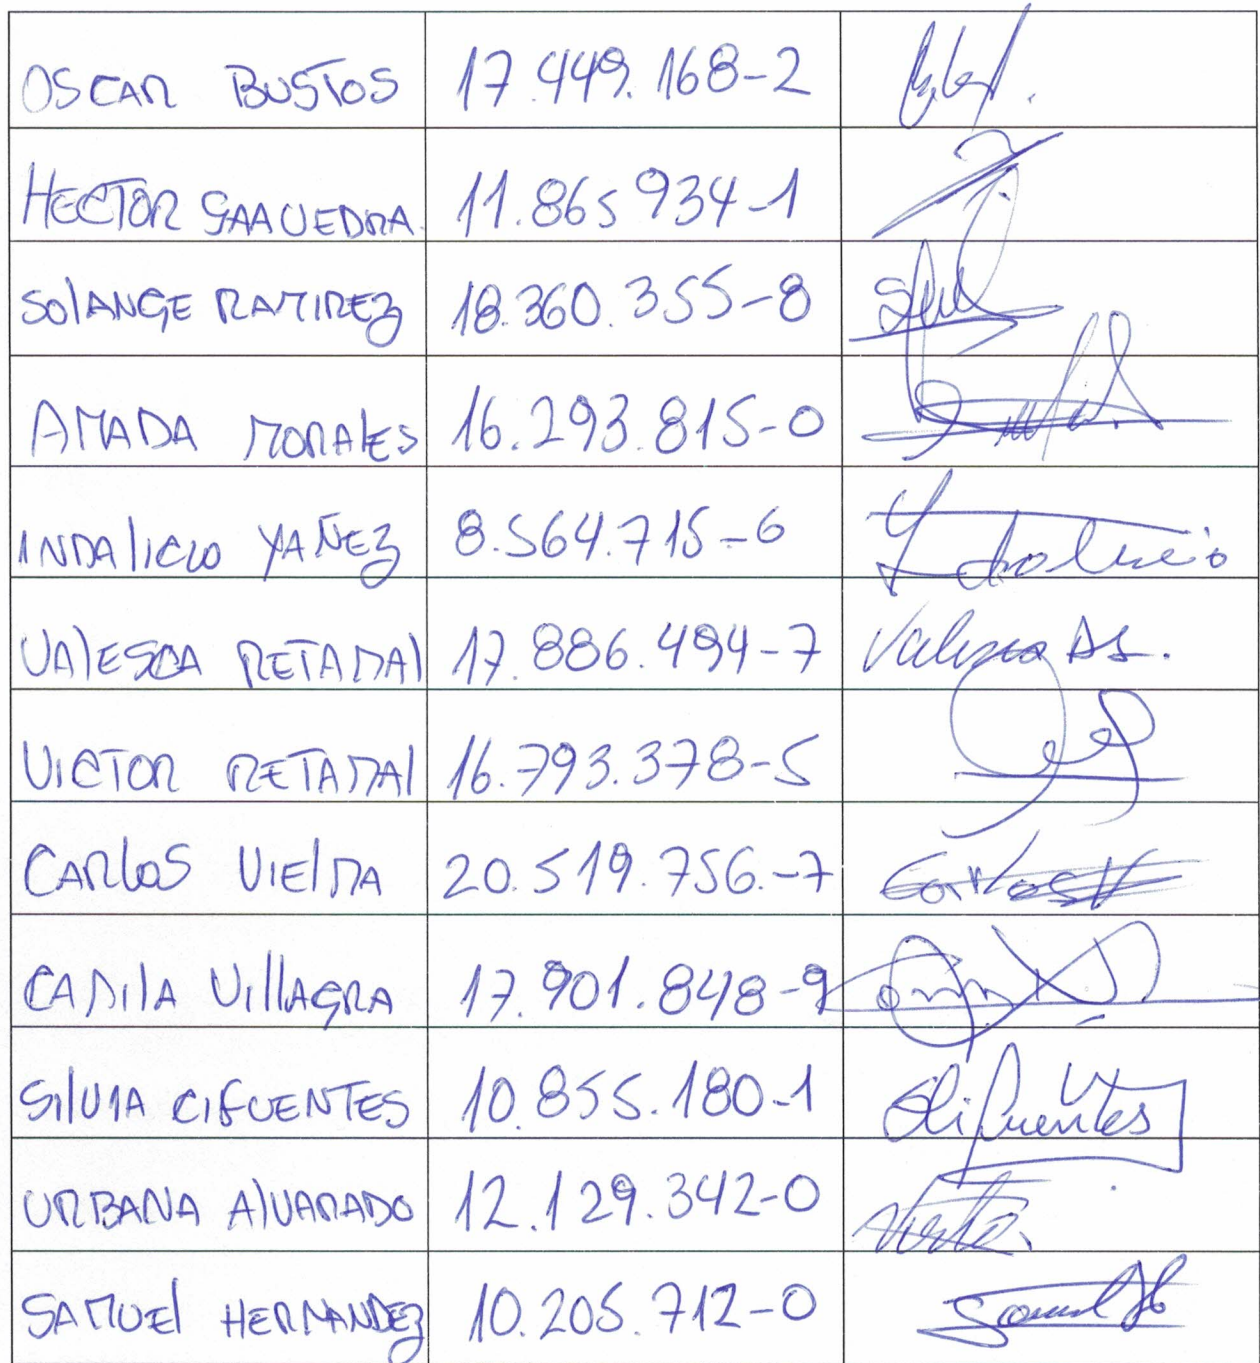 OSCAR BUSTOS 17.449.168-2
HECTOR SAAVEDRA. 11.865934-1
SOlANGE RAMIREZ 18.360.355-8
AMADA MORALES 16.293.815-0
INDAlICIO YAÑEZ 8.564.715-6 Indalicio
VAlESCA RETAMAl 17.886.494-7 Valesca
VICTOR RETAMAl 16.793.378-5
CARlOS VIElMA 20.519.756.-7 Carlos V
CAMIlA VIllAGRA 17.901.848-9
SIlVIA CIFUENTES 10.855.180-1 SCifuentes
URBANA AlVARADO 12.129.342-0
SAMUEl HERNANDEZ 10.205.712-0 Samuel H